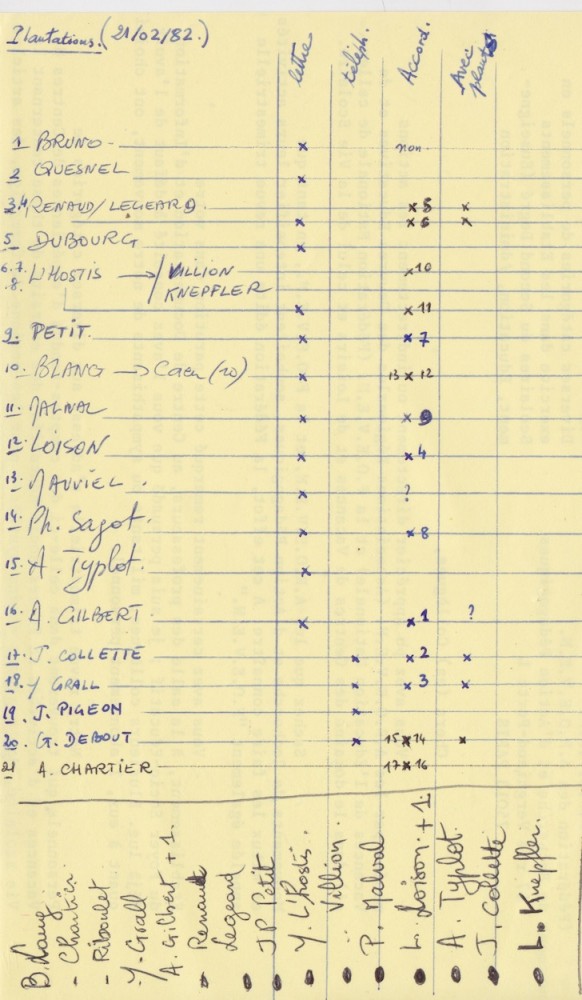 Plantations. (21/02/82.)
lettre téléph. Accord. Avec plants
1 BRUNO - x non
2 QUESNEL x
3.4 RENAUD/LEGEARD. x 5 x
x x 6 x
5 DUBOURG x
6.7.8. L'HOSTIS → / VILLION x 10
KNEPFLER
x x 11
9. PETIT. x x 7
10. BLANG → Caen (10) x 13 x 12
11. MALVAL x x 9
12. LOISON x x 4
13. MAUVIEL. x ?
14. Ph. Sagot. x x 8
15. A. Typlot. x
16. A. GILBERT. x x 1 ?
17. J. COLLETTE x x 2 x
18. Y GRALL x x 3 x
19 J. PIGEON x
20. G. DEBOUT x 15 x 14 x
21 A. CHARTIER 17 x 16
- Chartier
- Riboulet
- Y. Grall
A. Gilbert + 1.
- Renault
• Legeard
• JP Petit
• Y. L'Hostis.
• Villion.
• P. Malval
• L. Loison. + 1.
• A. Typlot.
• J. Collette
• L. Knepfler.